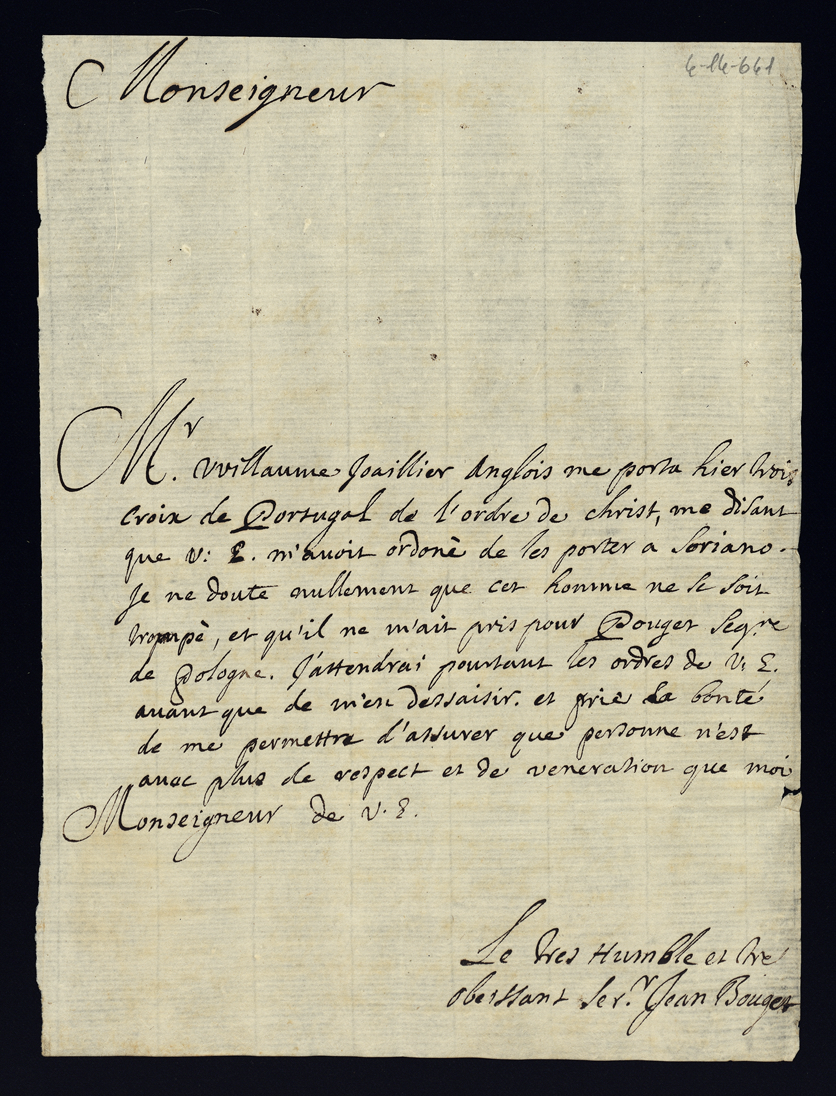 6-14-661
Monseigneur
Mr. Wuillaume Joaillier Anglois me porta hier trois
croix de Portugal de l'ordre de christ, me disant
que V: E. m'avoit ordonè de les porter a Soriano.
Je ne doute nullement que cet homme ne se soit
trompè, et qu'il ne m'ait pris pour Pouget Segre
de Pologne. J'attendrai pourtant les ordres de V: E.
avant que de m'en dessaisir. et prie sa bonté
de me permettre d'assurer que personne n'est
avec plus de respect et de veneration que moi
Monseigneur de V. E.
Le tres Humble et tres
obeissant Ser.r Jean Bouget